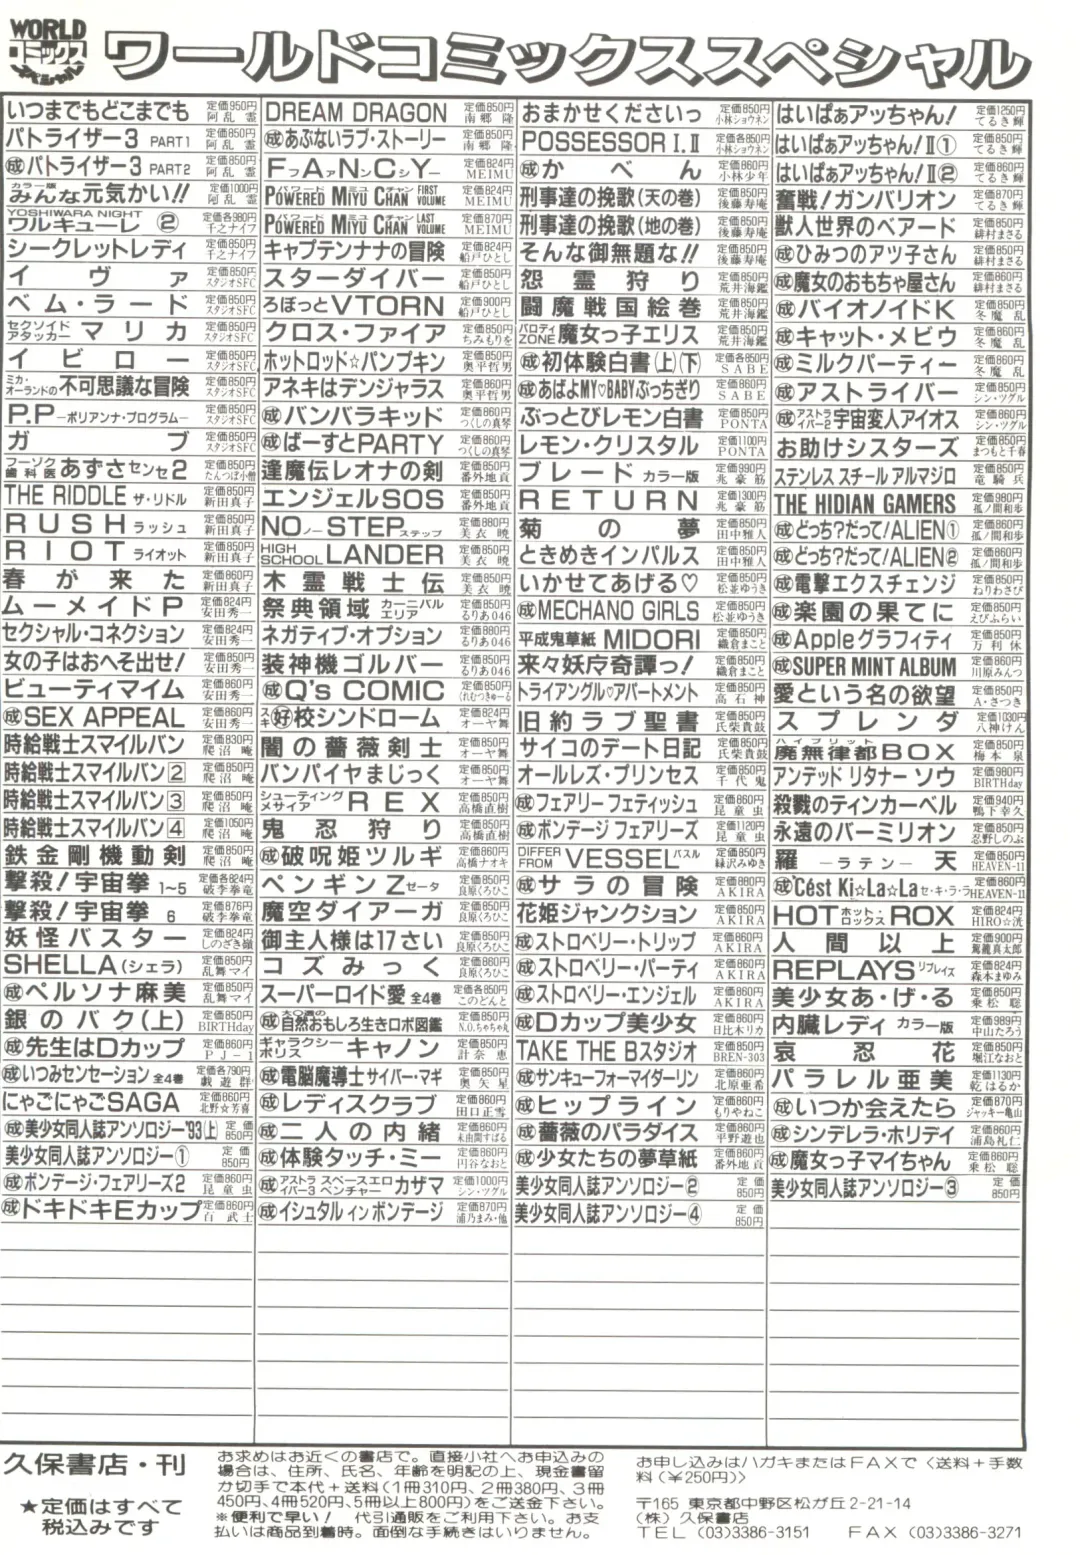 WORLD
コミックス
スペシャル
ワールドコミックススペシャル
いつまでもどこまでも 定価950円 阿乱霊
パトライザー3 PART1 定価850円 阿乱霊
成パトライザー3 PART2 定価850円 阿乱霊
カラー版 みんな元気かい!! 定価1000円 阿乱霊
YOSHIWARA NIGHT ワルキューレ ② 定価各980円 千之ナイフ
シークレットレディ 定価850円 千之ナイフ
イヴァ 定価850円 スタジオSFC
ベム・ラード 定価850円 スタジオSFC
セクソイドアタッカー マリカ 定価850円 スタジオSFC
イビロー 定価850円 スタジオSFC
ミカ・オーランドの不可思議な冒険 定価850円 スタジオSFC
P.P –ポリアンナ・プログラム– 定価850円 スタジオSFC
ガブ 定価850円 スタジオSFC
フーゾク歯科医 あずさセンセ2 定価850円 たんつぼ小僧
THE RIDDLE ザ・リドル 定価850円 新田真子
RUSH ラッシュ 定価850円 新田真子
RIOT ライオット 定価850円 新田真子
春が来た 定価860円 新田真子
ムーメイドP 定価824円 安田秀一
セクシャル・コネクション 定価824円 安田秀一
女の子はおへそ出せ! 定価850円 安田秀一
ビューティマイム 定価850円 安田秀一
成SEX APPEAL 定価860円 安田秀一
時給戦士スマイルバン 定価830円 爬沼庵
時給戦士スマイルバン2 定価850円 爬沼庵
時給戦士スマイルバン3 定価850円 爬沼庵
時給戦士スマイルバン4 定価1050円 爬沼庵
鉄金剛機動剣 定価850円 爬沼庵
撃殺!宇宙拳 1~5 定価各824円 破李拳竜
撃殺!宇宙拳 6 定価876円 破李拳竜
妖怪バスター 定価824円 しのざき嶺
SHELLA(シェラ) 定価850円 乱舞マイ
成ペルソナ麻美 定価850円 乱舞マイ
銀のバク(上) 定価850円 BIRTHday
成先生はDカップ 定価860円 PJ-1
成いつみセンセーション 全4巻 定価各790円 戯遊群
にゃごにゃごSAGA 定価860円 北野☆芳喜
成美少女同人誌アンソロジー'93(上) 定価850円
美少女同人誌アンソロジー① 定価850円
成ボンデージ・フェアリーズ2 定価860円 昆童虫
成ドキドキEカップ 定価860円 白武士
DREAM DRAGON 定価850円 南郷隆
成あぶないラブ・ストーリー 定価850円 南郷隆
FファAンNシCィY 定価824円 MEIMU
POWERED MIYU CHAN FIRST VOLUME パワード ミュ チャン 定価824円 MEIMU
POWERED MIYU CHAN LAST VOLUME パワード ミュ チャン 定価870円 MEIMU
キャプテンナナの冒険 定価824円 船戸ひとし
スターダイバー 定価850円 船戸ひとし
ろぼっとVTORN 定価900円 船戸ひとし
クロス・ファイア 定価850円 ちみもりを
ホットロッド☆パンプキン 定価850円 奥平哲男
アネキはデンジャラス 定価860円 奥平哲男
成バンバラキッド 定価860円 つくしの真琴
成ばーすとPARTY 定価860円 つくしの真琴
逢魔伝レオナの剣 定価850円 番外地貢
エンジェルSOS 定価850円 番外地貢
NOノーSTEPステップ 定価860円 美衣暁
HIGH SCHOOL LANDER 定価850円 美衣暁
木霊戦士伝 定価850円 美衣暁
祭典領域 カーニバルエリア 定価850円 るりあ046
ネガティブ・オプション 定価880円 るりあ046
装神機ゴルバー 定価850円 るりあ046
成Q's COMIC 定価850円 くれむつきゅーる
スキ好校シンドローム 定価824円 オーヤ舞
闇の薔薇剣士 定価850円 オーヤ舞
バンパイヤまじっく 定価850円 オーヤ舞
シューティングメサイア REX 定価850円 高橋直樹
鬼忍狩り 定価850円 高橋直樹
成破呪姫ツルギ 定価860円 高橋ナオキ
ペンギンZゼータ 定価850円 良原くろひこ
魔空ダイアーガ 定価850円 良原くろひこ
御主人様は17さい 定価860円 良原くろひこ
コズみっく 定価860円 良原くろひこ
スーパーロイド愛 全4巻 定価各850円 このどんと
成大○酒の自然おもしろ生きロボ図鑑 定価850円 N.O.ちゃちゃ丸
ギャラクシーポリス キャノン 定価850円 計奈恵
成電脳魔導士サイバー・マギ 定価860円 奥矢星
成レディスクラブ 定価860円 田口正雪
成二人の内緒 定価860円 未由間すばる
成体験タッチ・ミー 定価860円 円谷なおと
成アストライバー3 スペースエロベンチャー カザマ 定価1000円 シン・ツグル
成イシュタル イン ボンデージ 定価870円 浦乃まみ・他
おまかせくださいっ 定価850円 小林ショウネン
POSSESSOR I.II 定価各850円 小林ショウネン
成かべん 定価860円 小林少年
刑事達の挽歌(天の巻) 定価860円 後藤寿庵
刑事達の挽歌(地の巻) 定価860円 後藤寿庵
そんな御無題な!! 定価860円 後藤寿庵
怨霊狩り 定価850円 荒井海鑑
闘魔戦国絵巻 定価850円 荒井海鑑
パロディZONE魔女っ子エリス 定価860円 荒井海鑑
成初体験白書(上)(下) 定価各850円 SABE
成あばよMY♡BABYぶっちぎり 定価860円 SABE
ぶっとびレモン白書 定価850円 PONTA
レモン・クリスタル 定価1100円 PONTA
ブレード カラー版 定価990円 兆豪筋
RETURN 定価1300円 兆豪筋
菊の夢 定価850円 田中雅人
ときめきインパルス 定価850円 田中雅人
いかせてあげる♡ 定価850円 松並ゆうき
成MECHANO GIRLS 定価850円 松並ゆうき
平成鬼草紙 MIDORI 定価850円 織倉まこと
来々妖庁奇譚っ! 定価850円 織倉まこと
トライアングル♡アパートメント 定価850円 高石神
旧約ラブ聖書 定価850円 氏柴貴鼓
サイコのデート日記 定価850円 氏柴貴鼓
オールレズ・プリンセス 定価850円 千代鬼
成フェアリー フェティッシュ 定価860円 昆童虫
成ボンデージ フェアリーズ 定価1120円 昆童虫
DIFFER FROM VESSELバスル 定価850円 緑沢みゆき
成サラの冒険 定価880円 AKIRA
花姫ジャンクション 定価850円 AKIRA
成ストロベリー・トリップ 定価860円 AKIRA
成ストロベリー・パーティ 定価860円 AKIRA
成ストロベリー・エンジェル 定価860円 AKIRA
成Dカップ美少女 定価860円 日比木リカ
TAKE THE Bスタジオ 定価850円 BREN-303
成サンキューフォーマイダーリン 定価860円 北原亜希
成ヒップライン 定価860円 もりやねこ
成薔薇のパラダイス 定価860円 平野遊也
成少女たちの夢草紙 定価860円 番外地貢
美少女同人誌アンソロジー② 定価850円
美少女同人誌アンソロジー④ 定価850円
はいぱぁアッちゃん! 定価1250円 てるき輝
はいぱぁアッちゃん!II① 定価850円 てるき輝
はいぱぁアッちゃん!II② 定価860円 てるき輝
奮戦!ガンバリオン 定価860円 てるき輝
獣人世界のベアード 定価850円 緋村まさる
成ひみつのアツ子さん 定価850円 緋村まさる
成魔女のおもちゃ屋さん 定価860円 緋村まさる
成バイオノイドK 定価850円 冬魔乱
成キャット・メビウ 定価860円 冬魔乱
成ミルクパーティー 定価860円 冬魔乱
成アストライバー 定価850円 シン・ツグル
成アストライバー2 宇宙変人アイオス 定価860円 シン・ツグル
お助けシスターズ 定価850円 まつもと千春
ステンレス スチール アルマジロ 定価850円 竜騎兵
THE HIDIAN GAMERS 定価980円 孤ノ間和歩
成どっち?だって!ALIEN① 定価860円 孤ノ間和歩
成どっち?だって!ALIEN② 定価860円 孤ノ間和歩
成電撃エクスチェンジ 定価860円 ねりわさび
成楽園の果てに 定価860円 えびふらい
成Appleグラフィティ 定価860円 万利休
成SUPER MINT ALBUM 定価860円 川原みんつ
愛という名の欲望 定価850円 A・さつき
スプレンダ 定価1030円 八神けん
ハイブリット 廃無律都BOX 定価850円 梅本泉
アンデッド リタナー ソウ 定価980円 BIRTHday
殺戮のティンカーベル 定価940円 鴨下幸久
永遠のバーミリオン 定価850円 忍野しのぶ
羅–ラテン–天 定価850円 HEAVEN-11
成C'est Ki☆La☆Laセ・キ・ラ・ラ 定価860円 HEAVEN-11
HOTホット・ロックスROX 定価824円 HIRO☆洸
人間以上 定価900円 駕籠真太郎
REPLAYSリプレイズ 定価824円 森本まゆみ
美少女あ・げ・る 定価850円 乗松聡
内臓レディ カラー版 定価989円 中山たろう
哀忍花 定価850円 堀江なおと
パラレル亜美 定価1130円 乾はるか
成いつか会えたら 定価870円 ジャッキー亀山
成シンデレラ・ホリデイ 定価850円 浦島礼仁
成魔女っ子マイちゃん 定価860円 乗松聡
美少女同人誌アンソロジー③ 定価850円
久保書店・刊
★定価はすべて
税込みです
お求めはお近くの書店で。直接小社へお申込みの
場合は、住所、氏名、年齢を明記の上、現金書留
か切手で本代+送料(1冊310円、2冊380円、3冊
450円、4冊520円、5冊以上800円)をご送金下さい。
※便利で早い! 代引通販をご利用下さい。お支
払いは商品到着時。面倒な手続きはいりません。
お申し込みはハガキまたはFAXで〈送料+手数
料(¥250円)〉
〒165 東京都中野区松が丘2-21-14
(株)久保書店
TEL (03)3386-3151 FAX (03)3386-3271